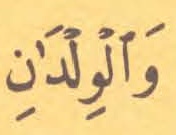 وَٱلْوِلْدَٰنِ